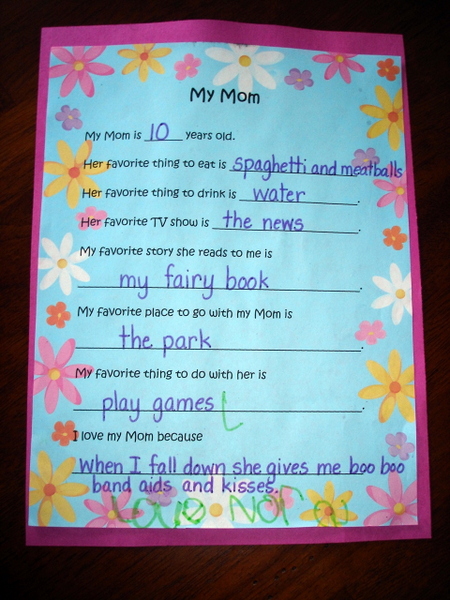 My Mom
My Mom is 10 years old.
Her favorite thing to eat is spaghetti and meatballs
Her favorite thing to drink is water.
Her favorite TV show is the news.
My favorite story she reads to me is
my fairy book.
My favorite place to go with my Mom is
the park.
My favorite thing to do with her is
play games L.
I love my Mom because
when I fall down she gives me boo boo
band aids and kisses.
Love